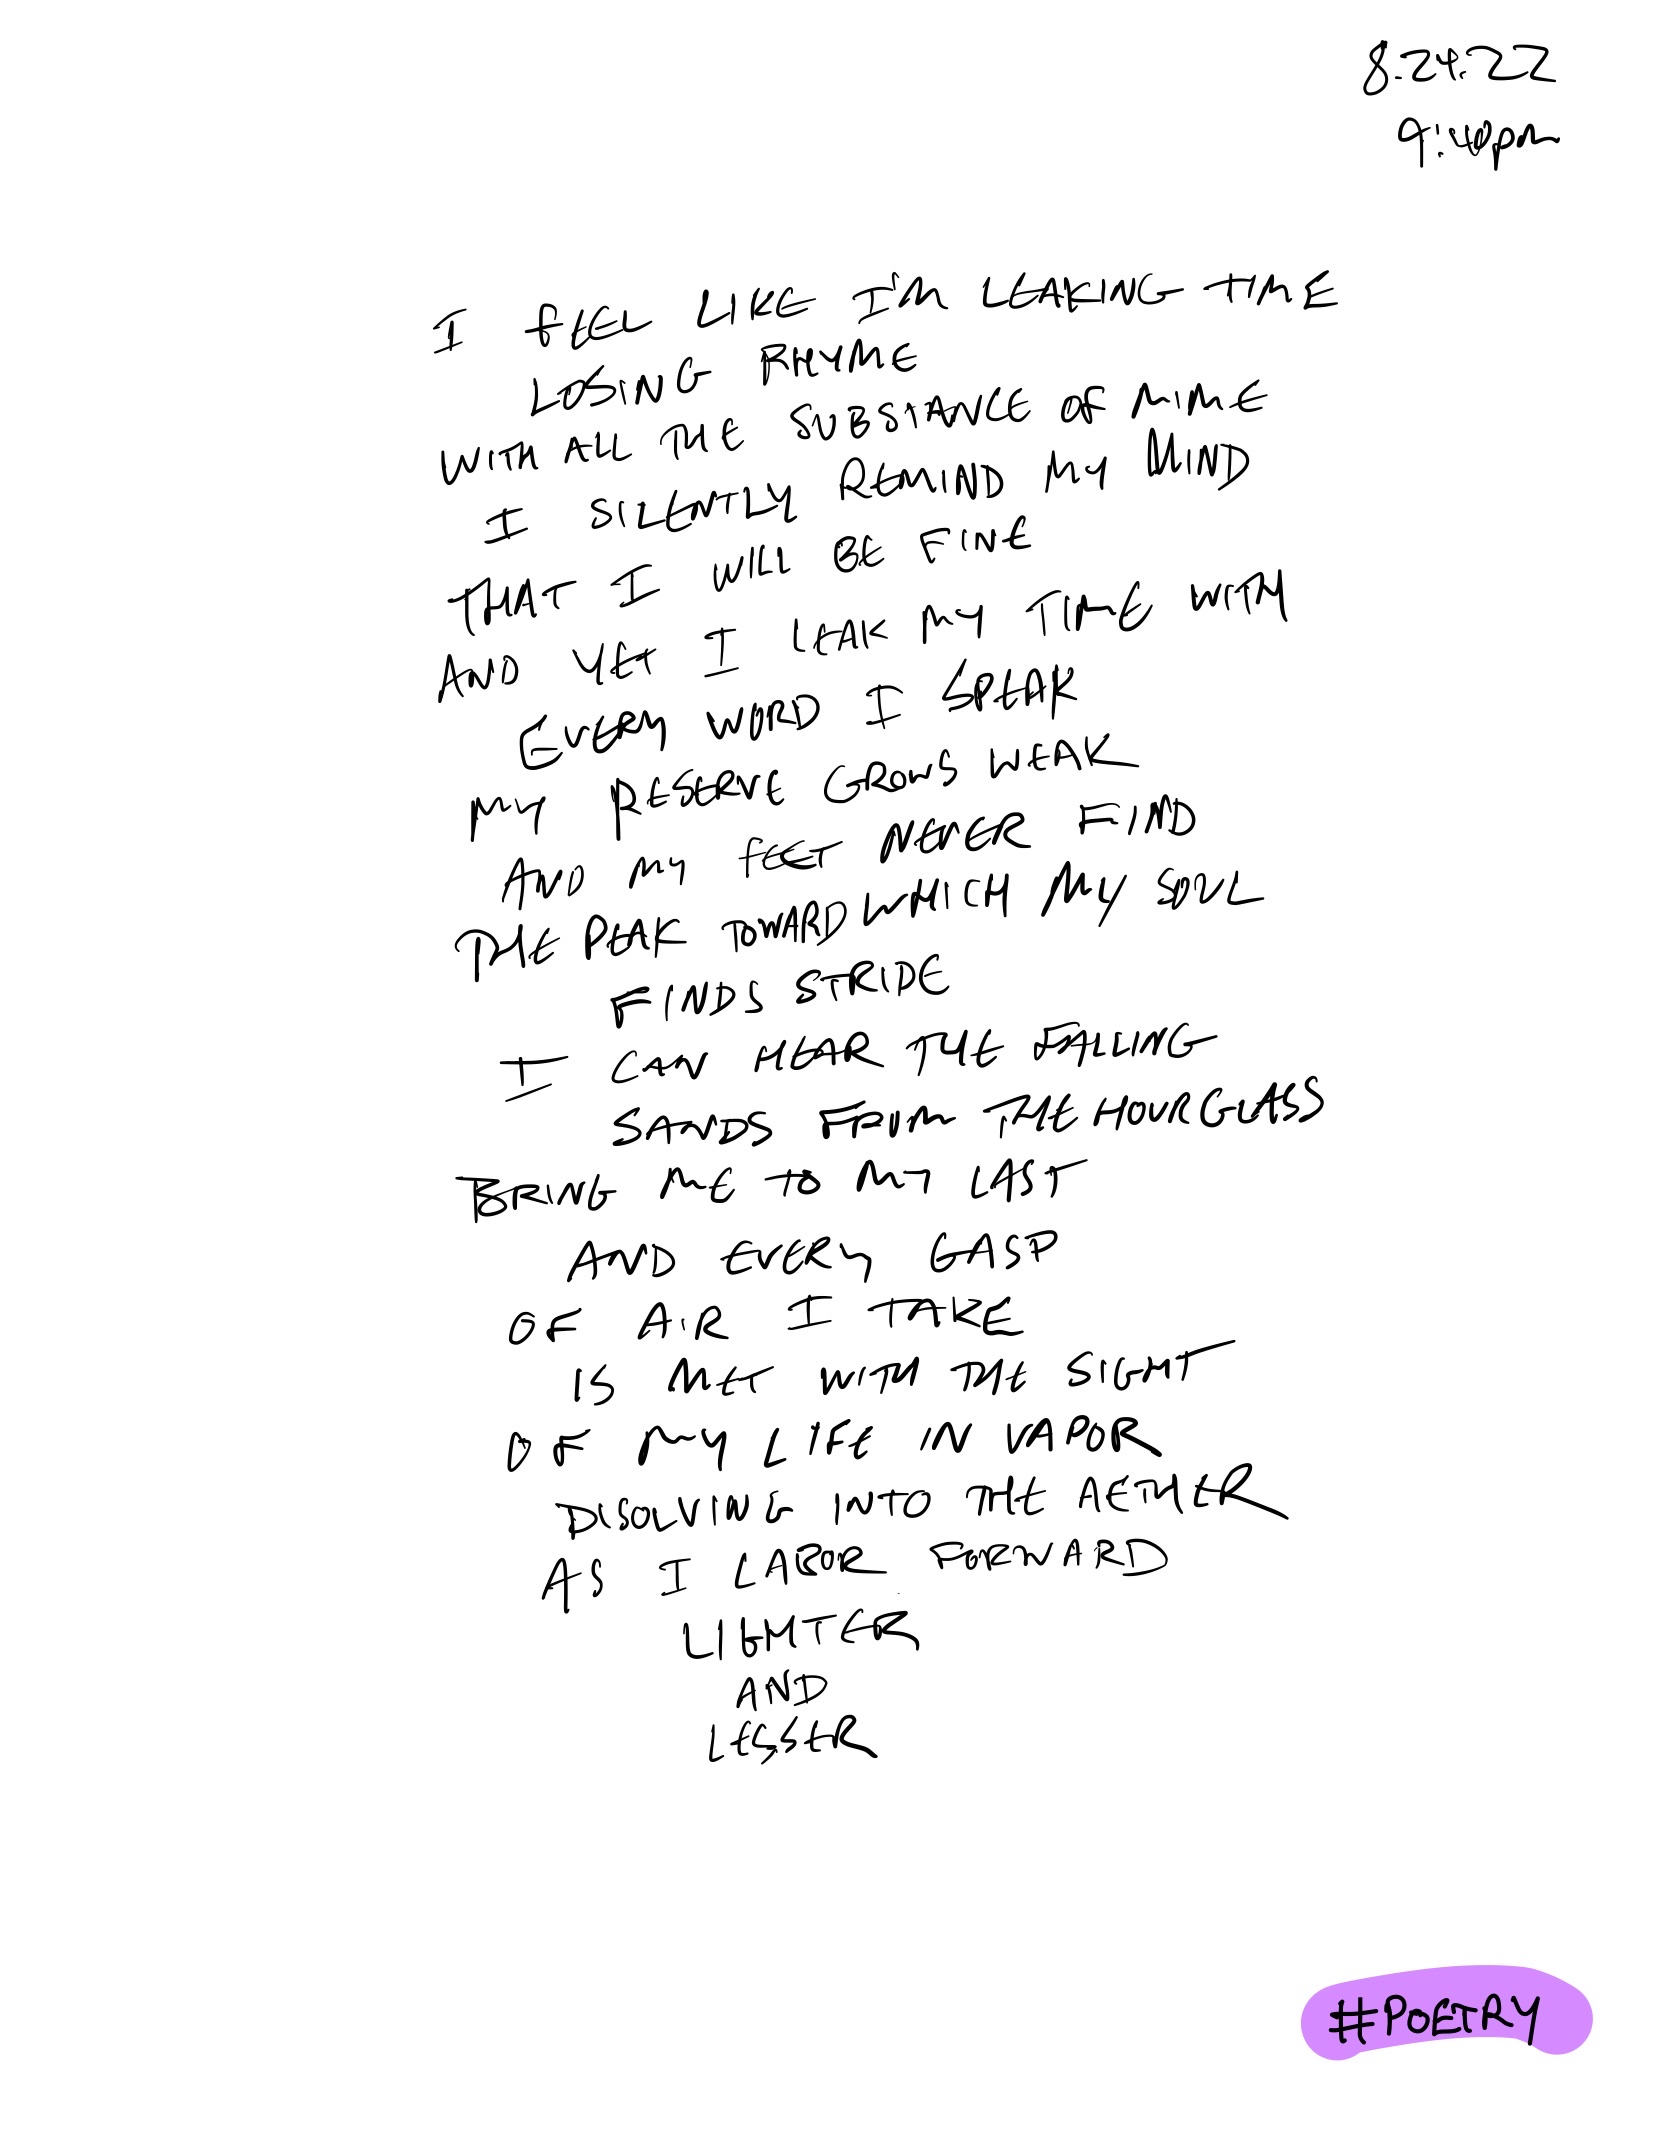 8.24.22
9:40pm
I FEEL LIKE I'M LEAKING TIME
LOSING RHYME
WITH ALL THE SUBSTANCE OF MIME
I SILENTLY REMIND MY MIND
THAT I WILL BE FINE
AND YET I LEAK MY TIME WITH
EVERY WORD I SPEAK
MY RESERVE GROWS WEAK
AND MY FEET NEVER FIND
THE PEAK TOWARD WHICH MY SOUL
FINDS STRIDE
I CAN HEAR THE FALLING
SANDS FROM THE HOURGLASS
BRING ME TO MY LAST
AND EVERY GASP
OF AIR I TAKE
IS MET WITH THE SIGHT
OF MY LIFE IN VAPOR
DISOLVING INTO THE AETHER
AS I LABOR FORWARD
LIGHTER
AND
LESSER
#POETRY